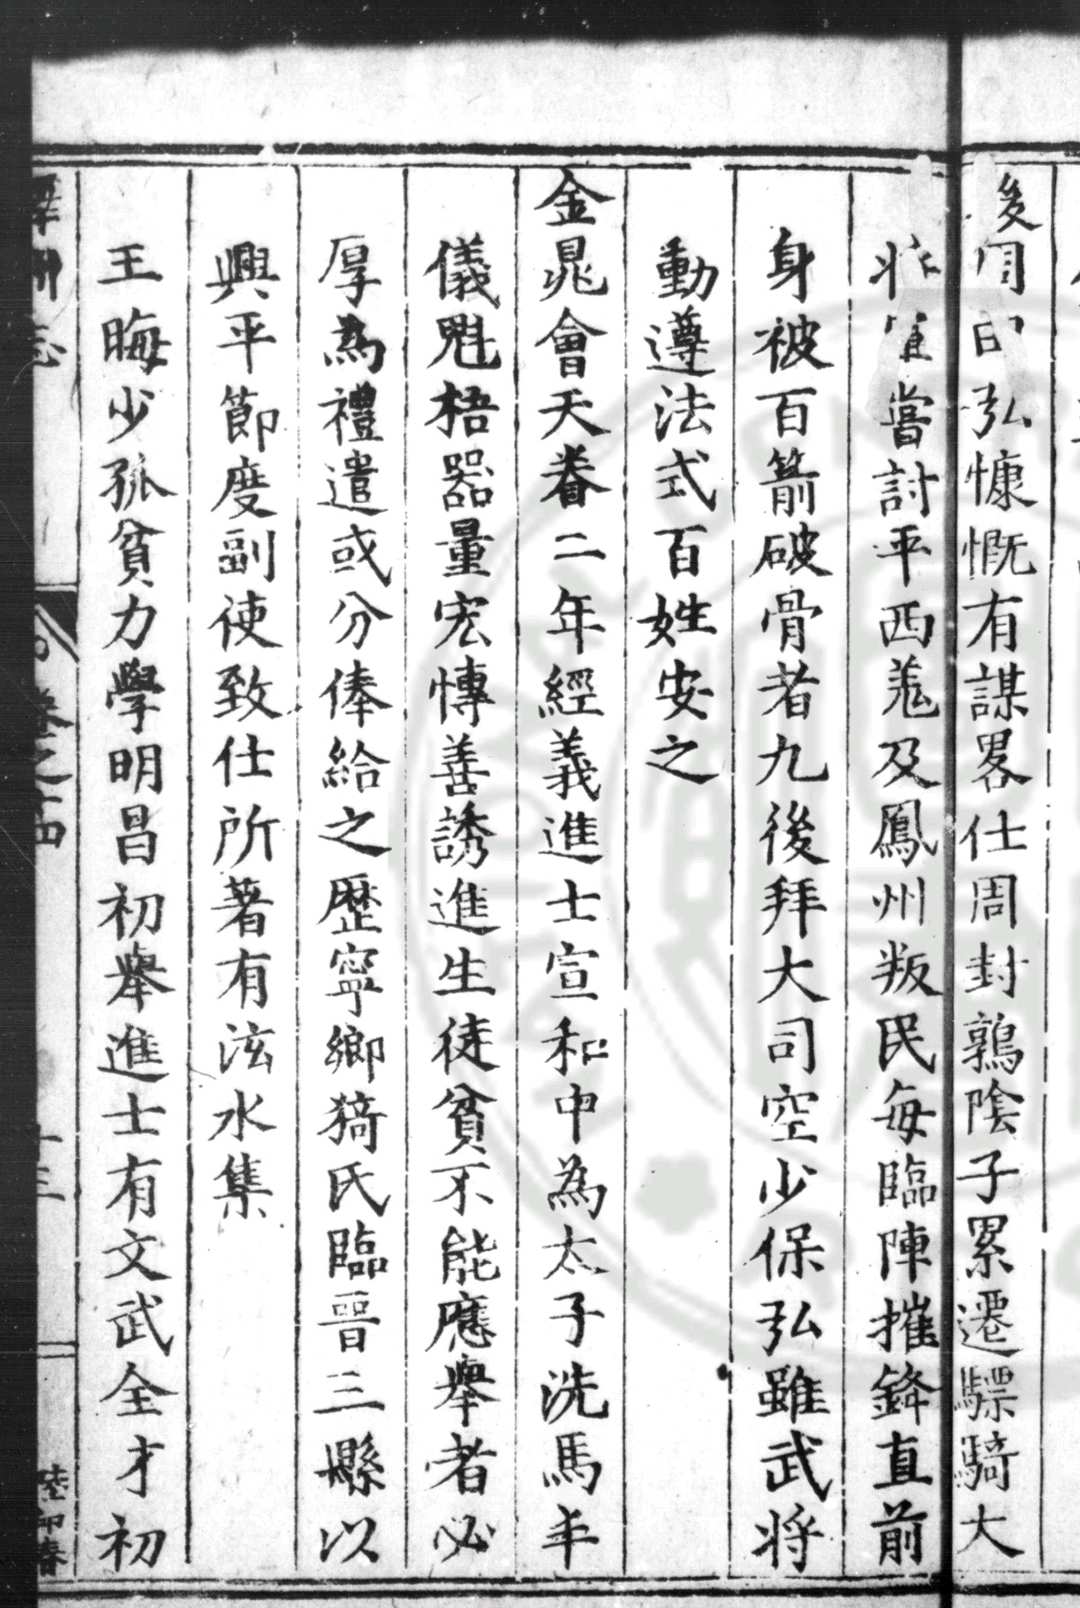 後周田弘慷慨有謀畧仕周封鶉陰子累遷驃騎大
將軍嘗討平西羗及鳳州叛民每臨陣摧鋒直前
身被百箭破骨者九後拜大司空少保弘雖武將
動遵法式百姓安之
金晁會天眷二年經義進士宣和中為太子洗馬丰
儀魁梧器量宏慱善誘進生徒貧不能應舉者必
厚為禮遣或分俸給之歷寧鄉猗氏臨晉三縣以
興平節度副使致仕所著有泫水集
王晦少孤貧力學明昌初舉進士有文武全才初
澤州志
卷之十四
十三